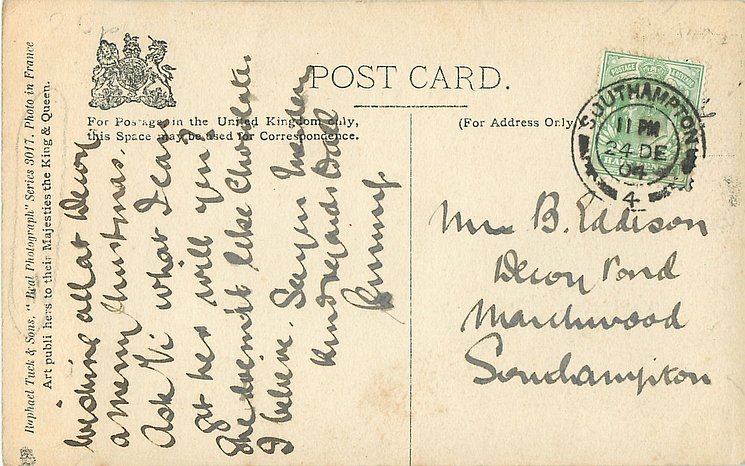 Raphael Tuck & Sons, "Real Photograph" Series 3017. Photo in France
Art publishers to their Majesties the King & Queen.
POST CARD.
For Postage in the United Kingdom only,
this Space may be used for Correspondence.
(For Address Only
wishing all at Decoy
a merry Christmas.
Ask Vi what I can
get her will you
She doesn't like Chocolate.
I believe.
Kind regards
POSTAGE & REVENUE
HALF PENNY
SOUTHAMPTON
11 PM
24 DE
04
4
B. Eddison
Decoy Pond
Marchwood
Southampton